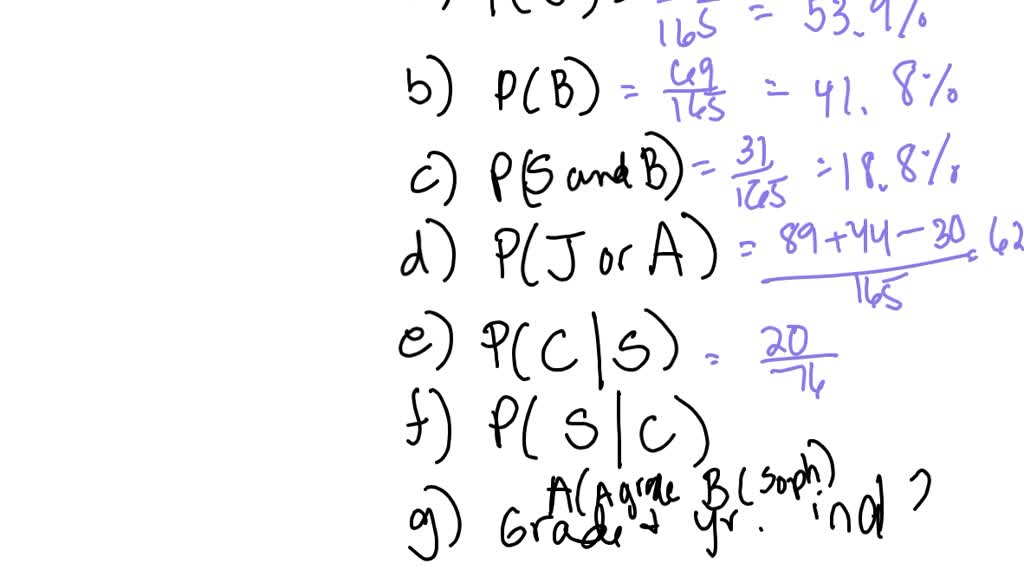 165 = 53.9%
b) P(B) = 69/165 = 41.8%
c) P(S and B) = 31/165 = 18.8%
d) P(J or A) = 89+44-30/165 = .62
e) P(C|S) = 20/76
f) P(S|C)
A(A grade B(Soph)
g) Grade + yr. ind?